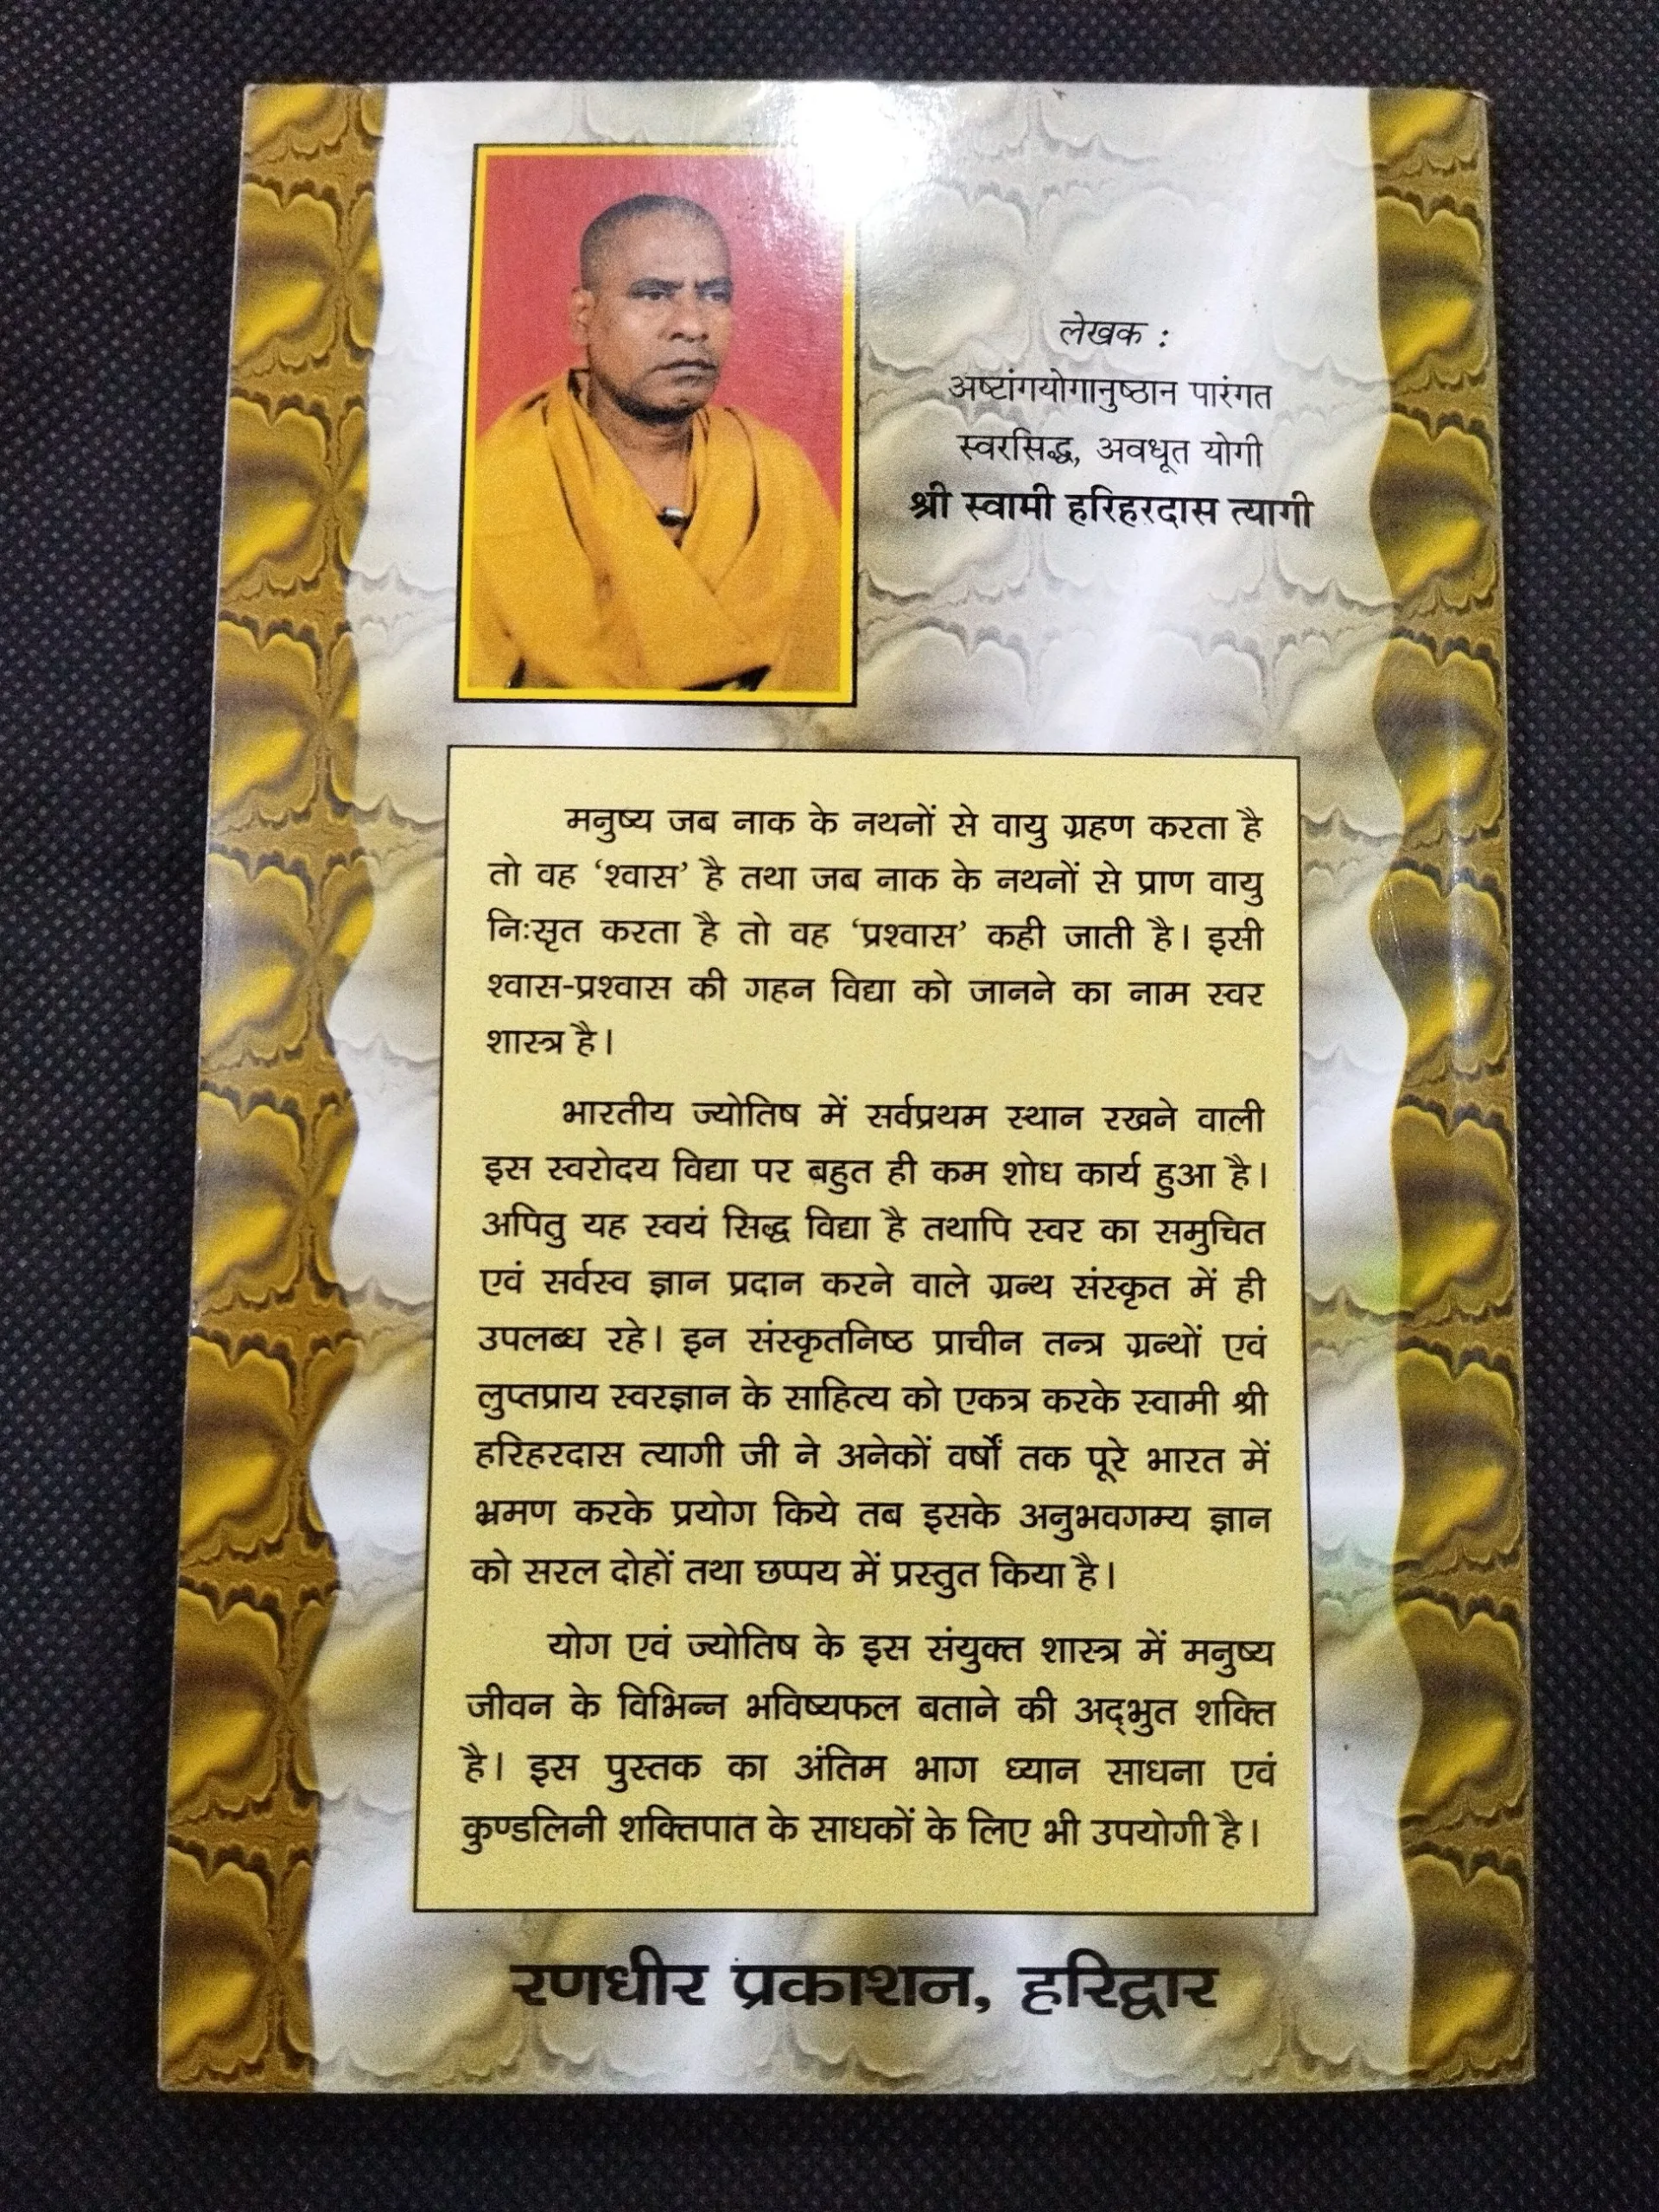 लेखक :
अष्टांगयोगानुष्ठान पारंगत
स्वरसिद्ध, अवधूत योगी
श्री स्वामी हरिहरदास त्यागी
मनुष्य जब नाक के नथनों से वायु ग्रहण करता है
तो वह ‘श्वास’ है तथा जब नाक के नथनों से प्राण वायु
निःसृत करता है तो वह ‘प्रश्वास’ कही जाती है। इसी
श्वास-प्रश्वास की गहन विद्या को जानने का नाम स्वर
शास्त्र है।
भारतीय ज्योतिष में सर्वप्रथम स्थान रखने वाली
इस स्वरोदय विद्या पर बहुत ही कम शोध कार्य हुआ है।
अपितु यह स्वयं सिद्ध विद्या है तथापि स्वर का समुचित
एवं सर्वस्व ज्ञान प्रदान करने वाले ग्रन्थ संस्कृत में ही
उपलब्ध रहे। इन संस्कृतनिष्ठ प्राचीन तन्त्र ग्रन्थों एवं
लुप्तप्राय स्वरज्ञान के साहित्य को एकत्र करके स्वामी श्री
हरिहरदास त्यागी जी ने अनेकों वर्षों तक पूरे भारत में
भ्रमण करके प्रयोग किये तब इसके अनुभवगम्य ज्ञान
को सरल दोहों तथा छप्पय में प्रस्तुत किया है।
योग एवं ज्योतिष के इस संयुक्त शास्त्र में मनुष्य
जीवन के विभिन्न भविष्यफल बताने की अद्‌भुत शक्ति
है। इस पुस्तक का अंतिम भाग ध्यान साधना एवं
कुण्डलिनी शक्तिपात के साधकों के लिए भी उपयोगी है।
रणधीर प्रकाशन, हरिद्वार